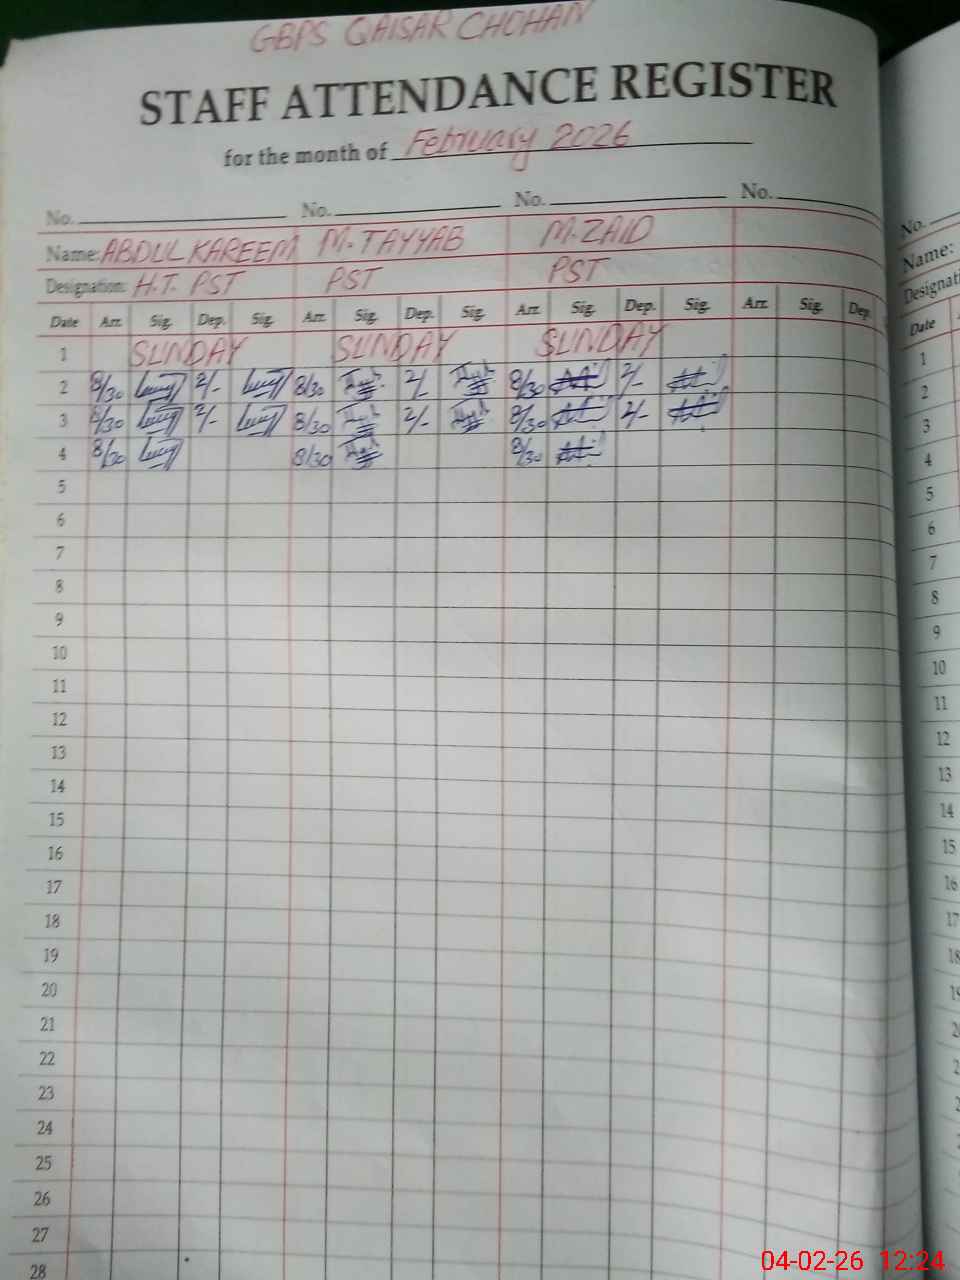 GBPS QAISAR CHOHAN
STAFF ATTENDANCE REGISTER
for the month of February 2026
No. No. No. No.
Name: ABDUL KAREEM M. TAYYAB M. ZAID
Designation: H.T. PST PST PST
Date Arr. Sig. Dep. Sig. Arr. Sig. Dep. Sig. Arr. Sig. Dep. Sig. Arr. Sig. Dep.
1 SUNDAY SUNDAY SUNDAY
2 8/30 2/- 8/30 2/- 8/30 2/-
3 8/30 2/- 8/30 2/- 8/30 2/-
4 8/30 8/30 8/30
5
6
7
8
9
10
11
12
13
14
15
16
17
18
19
20
21
22
23
24
25
26
27
28
No.
Name:
Date
1
2
3
4
5
6
7
8
9
10
11
12
13
14
15
16
17
18
04-02-26 12:24